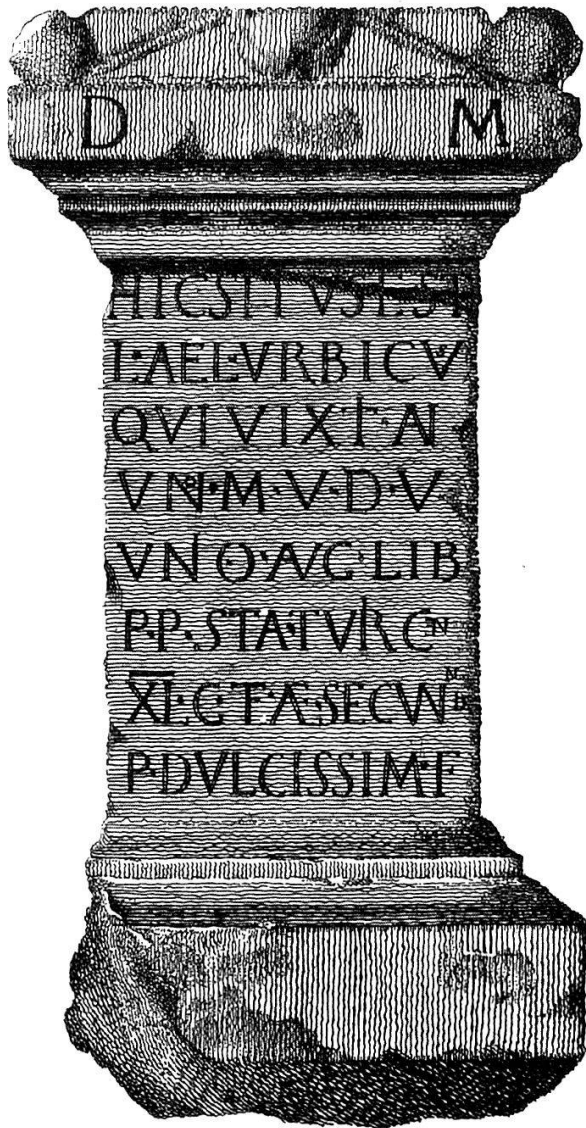 D M
HIC SITVS EST
L·AEL·VRBICV
QVI VIXT·AN
VN·M·V·D·V·
VNO·AVG·LIB
P·P·STA·TVRCN
XL·G·T·Æ·SECVN
P·DVLCISSIM·F